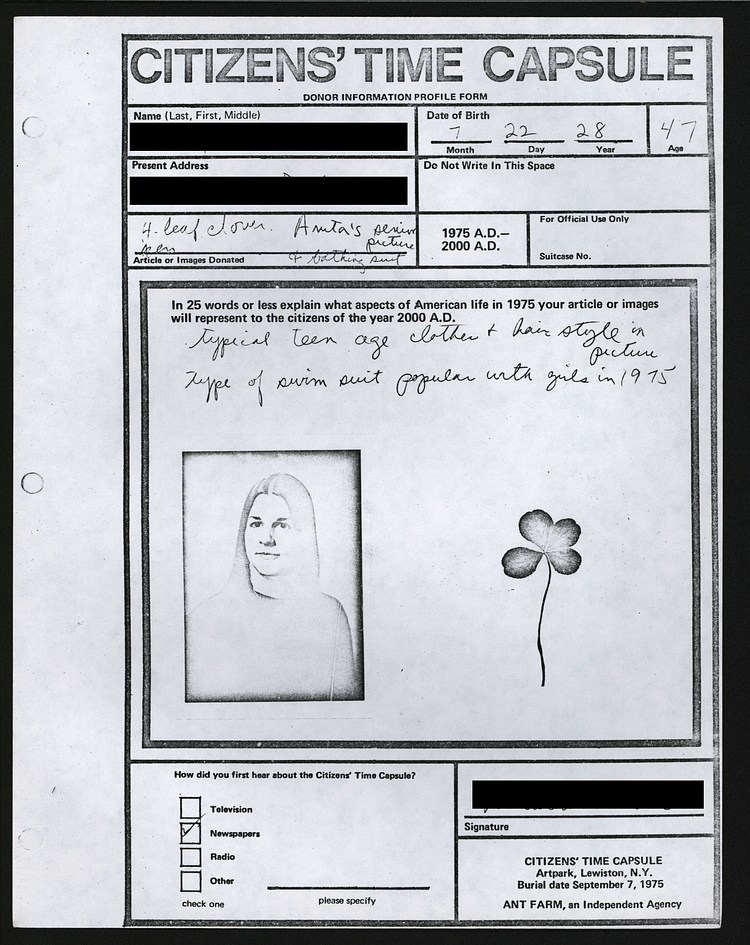 CITIZENS' TIME CAPSULE
DONOR INFORMATION PROFILE FORM
Name (Last, First, Middle)
Date of Birth
7 22 28 47
Month Day Year Age
Present Address
Do Not Write In This Space
4-leaf clover. Anita's senior
pen picture
& bathing suit
Article or Images Donated
1975 A.D.—
2000 A.D.
For Official Use Only
Suitcase No.
In 25 words or less explain what aspects of American life in 1975 your article or images
will represent to the citizens of the year 2000 A.D.
typical teen age clothes + hair style in
picture
type of swim suit popular with girls in 1975
How did you first hear about the Citizens' Time Capsule?
Television
Newspapers
Radio
Other
check one
please specify
Signature
CITIZENS' TIME CAPSULE
Artpark, Lewiston, N.Y.
Burial date September 7, 1975
ANT FARM, an Independent Agency